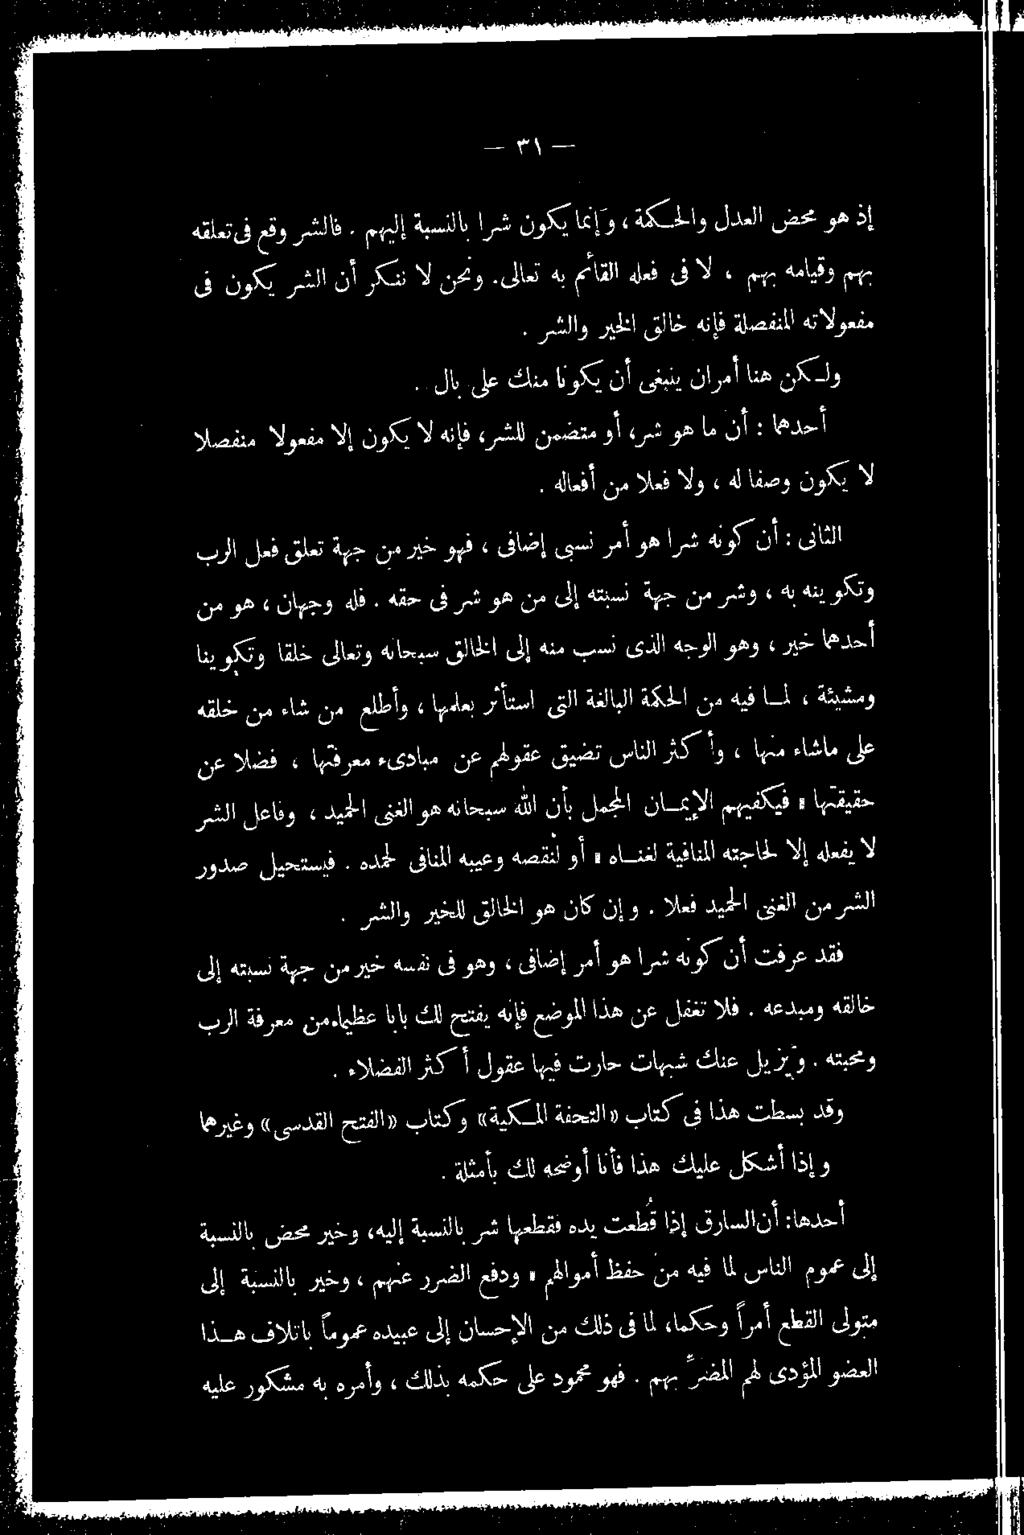 — ٣١ —
إذ هو محض العدل والحكمة ، وإنما يكون شرا بالنسبة إليهم . فالشر وقع فى تعلقه
بهم وقيامه بهم ، لا فى فعله القائم به تعالى . ونحن لا ننكر أن الشر يكون فى
مفعولاته المنفصلة فإنه خالق الخير والشر .
ولكن هنا أمران ينبغى أن يكونا منك على بال .
أحدهما : أن ما هو شر، أو متضمن للشر، فإنه لا يكون إلا مفعولا منفصلا
لا يكون وصفا له ، ولا فعلا من أفعاله .
الثانى : أن كونه شرا هو أمر نسبى إضافى ، فهو خير من جهة تعلق فعل الرب
وتكوينه به ، وشر من جهة نسبته إلى من هو شر فى حقه . فله وجهان ، هو من
أحدهما خير ، وهو الوجه الذى نسب منه إلى الخالق سبحانه وتعالى خلقا وتكوينا
ومشيئة ، لما فيه من الحكمة البالغة التى استأثر بعلمها ، وأطلع من شاء من خلقه
على ماشاء منها ، وأكثر الناس تضيق عقولهم عن مبادىء معرفتها ، فضلا عن
حقيقتها ، فيكفيهم الإيمان المجمل بأن الله سبحانه هو الغنى الحميد ، وفاعل الشر
لا يفعله إلا لحاجته المنافية لغناه ، أو لنقصه وعيبه المنافى لحمده . فيستحيل صدور
الشر من الغنى الحميد فعلا . وإن كان هو الخالق للخير والشر .
فقد عرفت أن كونه شرا هو أمر إضافى ، وهو فى نفسه خير من جهة نسبته إلى
خالقه ومبدعه . فلا تغفل عن هذا الموضع فإنه يفتح لك بابا عظيما من معرفة الرب
ومحبته . ويزيل عنك شبهات حارت فيها عقول أكثر الفضلاء .
وقد بسطت هذا فى كتاب «التحفة المكية» وكتاب «الفتح القدسى» وغيرهما
وإذا أشكل عليك هذا فأنا أوضحه لك بأمثلة .
أحدها: أن السارق إذا قُطعت يده فقطعها شر بالنسبة إليه، وخير محض بالنسبة
إلى عموم الناس لما فيه من حفظ أموالهم ، ودفع الضرر عنهم ، وخير بالنسبة إلى
متولى القطع أمراً وحكما، لما فى ذلك من الإحسان إلى عبيده عموماً باتلاف هذا
العضو المؤدى لهم المضرِّ بهم . فهو محمود على حكمه بذلك ، وأمره به مشكور عليه